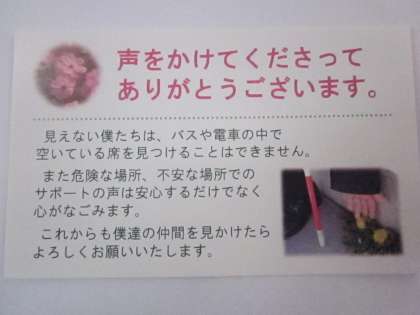 声をかけてくださって
ありがとうございます。
見えない僕たちは、バスや電車の中で
空いている席を見つけることはできません。
また危険な場所、不安な場所での
サポートの声は安心するだけでなく
心がなごみます。
これからも僕達の仲間を見かけたら
よろしくお願いいたします。